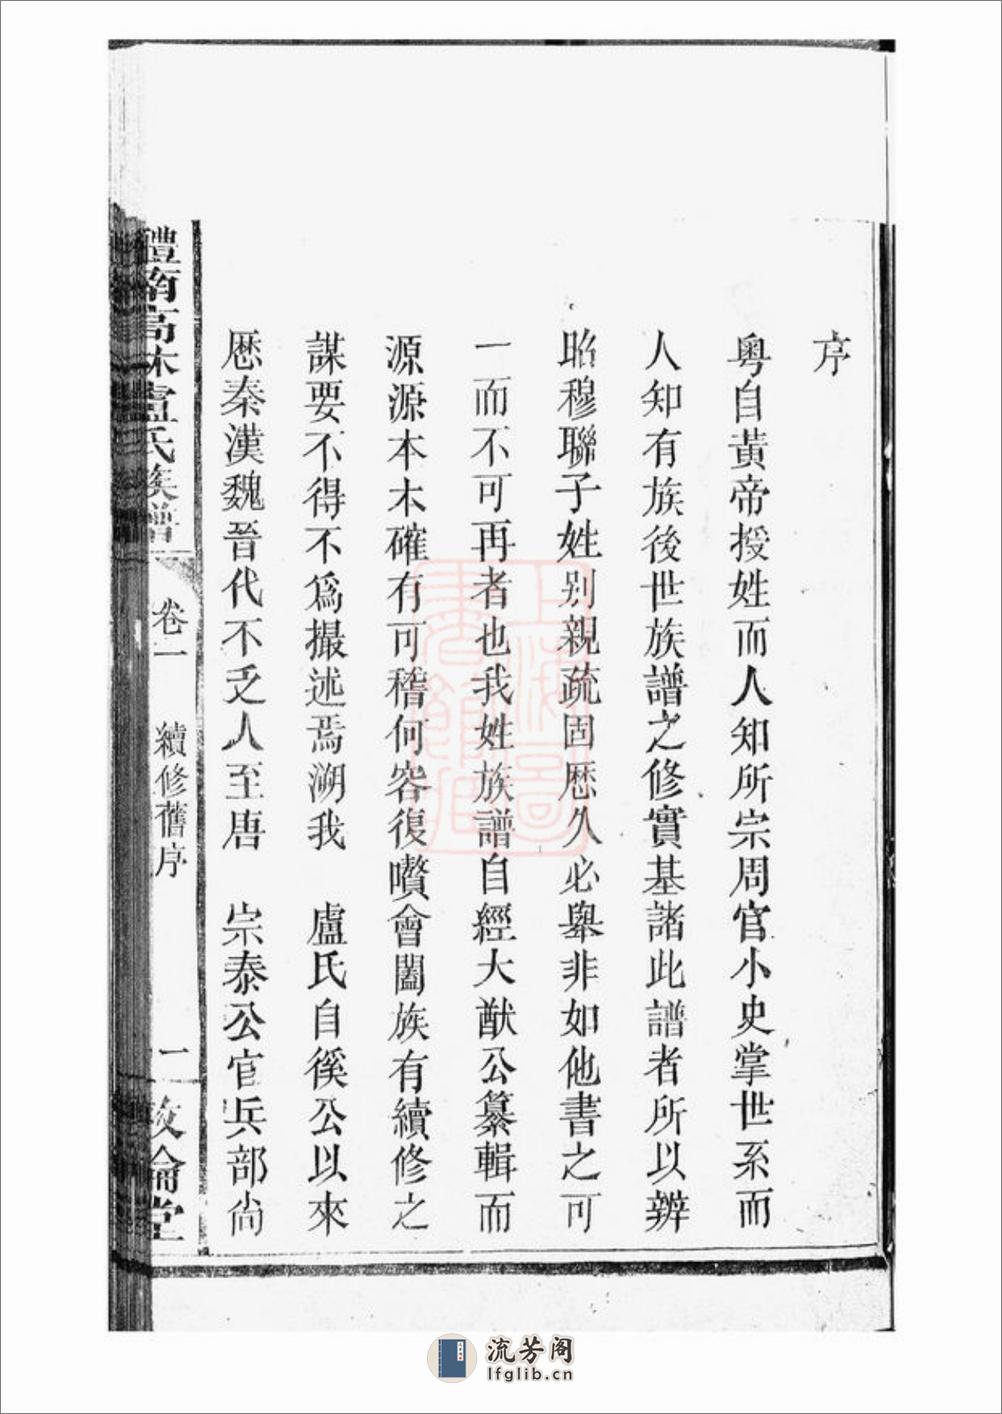 序
粤自黃帝授姓而人知所宗周官小史掌世系而
人知有族後世族譜之修實基諸此譜者所以辨
昭穆聯子姓别親疏固厯久必舉非如他書之可
一而不可再者也我姓族譜自經大猷公纂輯而
源源本木確有可稽何容復囋會闔族有續修之
謀要不得不爲撮述焉溯我　盧氏自徯公以來
厯秦漢魏晉代不乏人至唐　宗泰公官兵部尚
澧南高林盧氏族譜
卷一
續修舊序
二
敦倫堂
上海圖書館藏
流芳阁
lfglib.cn